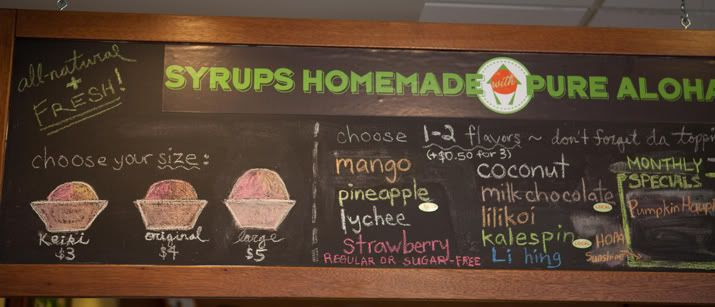 all-natural
+
FRESH!
SYRUPS HOMEMADE with PURE ALOHA
choose your size:
Keiki
$3
original
$4
large
$5
choose 1-2 flavors ~ don't forget da
(+$0.50 for 3)
mango
pineapple
lychee
Strawberry
REGULAR OR SUGAR-FREE
coconut
milk chocolate
lilikoi
kalespin
Li hing
MONTHLY
SPECIALS
Pumpkin
Sunshine